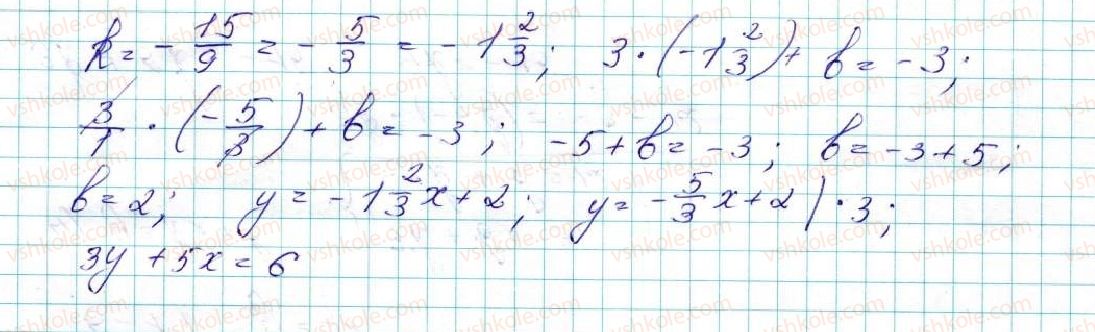 k = -15/9 = -5/3 = -1 2/3; 3·(-1 2/3) + b = -3;
3/1 · (-5/3) + b = -3; -5 + b = -3; b = -3 + 5;
b = 2; y = -1 2/3 x + 2; y = -5/3 x + 2 | · 3;
3y + 5x = 6
vshkole.com